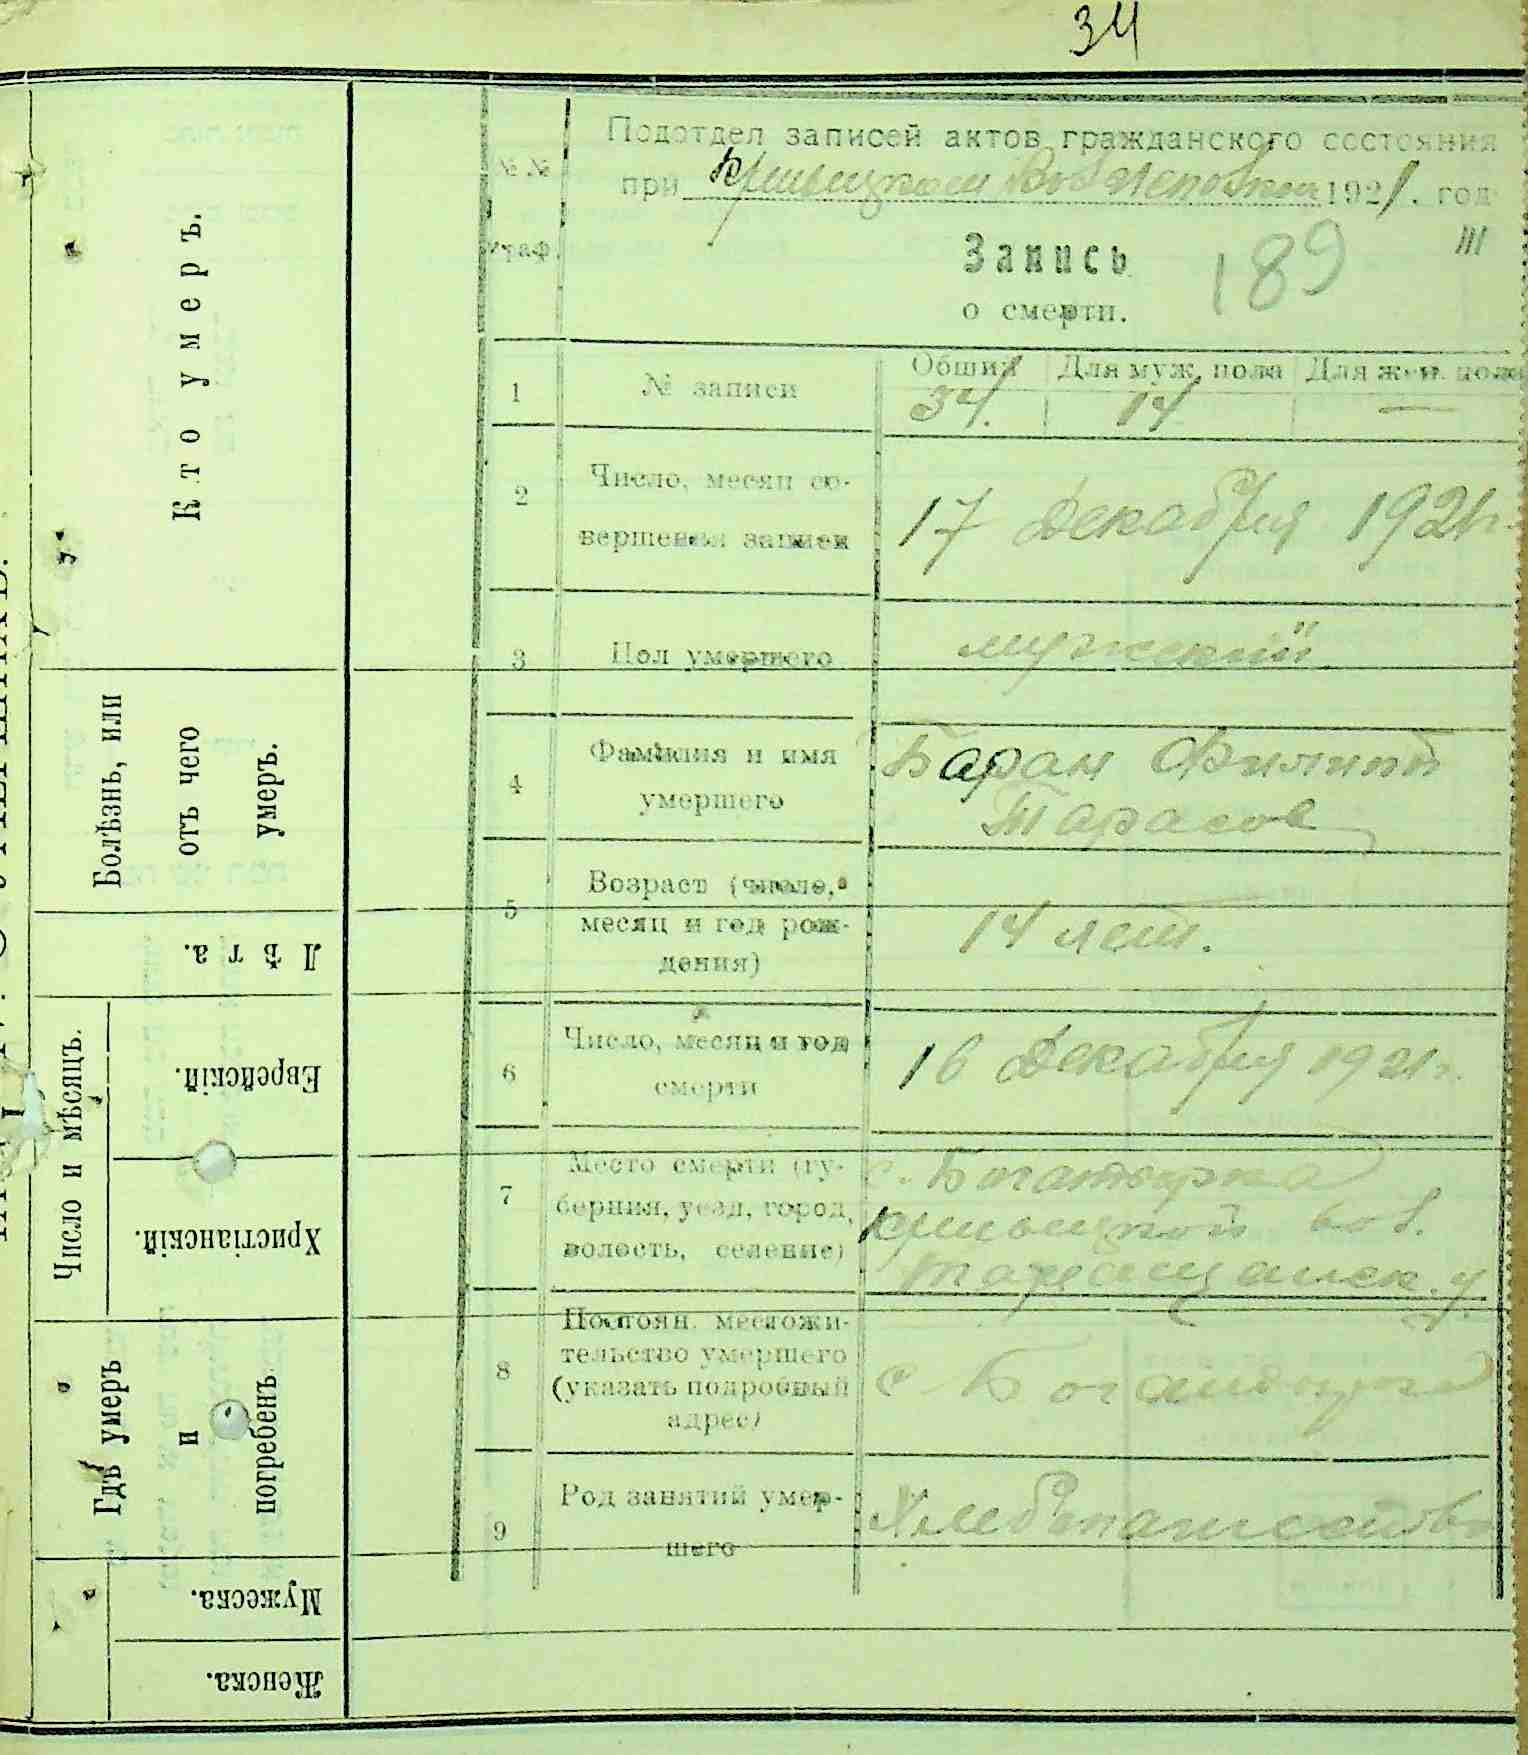 34
Подотдел записей актов гражданского состояния
при Кривецком Волисполкоме 1921. год
№ №
граф.
Запись 189
о смерти.
1 № записи Общий Для муж. пола Для жен. пола
34. 14 —
2 Число, месяц со-
вершения записи
17 Декабря 1921 г.
3 Пол умершего мужской
4 Фамилия и имя
умершего
Баран Филипп
Тарасов
5 Возраст (число,
месяц и год рож-
дения)
14 лет.
6 Число, месяц и год
смерти
16 Декабря 1921 г.
7 Место смерти (гу-
берния, уезд, город,
волость, селение)
с. Богатырка
Кривецкой вол.
Таращанск. у.
8 Постоян. местожи-
тельство умершего
(указать подробный
адрес)
с Богатырка
9 Род занятий умер-
шего
Хлебопашество
Кто умеръ.
Болѣзнь, или
отъ чего
умеръ.
Лѣта.
Число и мѣсяцъ.
Еврейскій.
Христіанскій.
Гдѣ умеръ
и
погребенъ
Мужеска.
Женска.